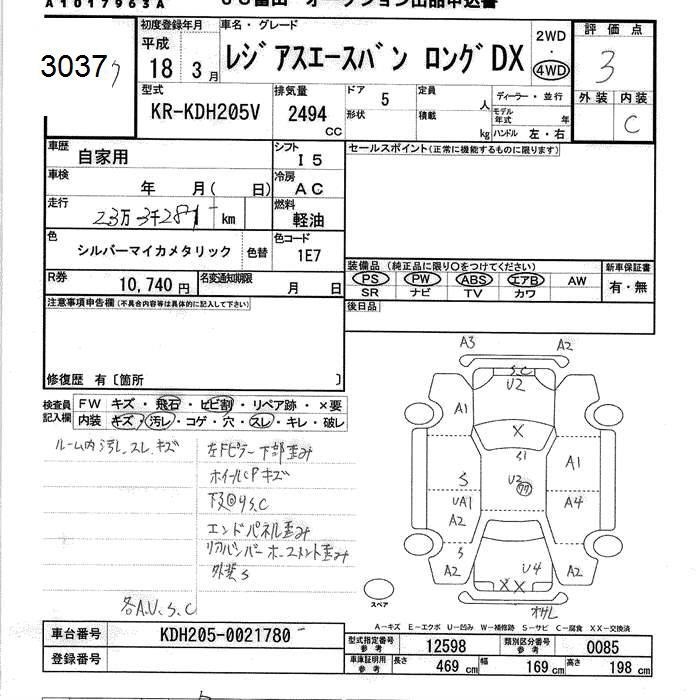 A1017963A
3037
初度登録年月
車名・グレード
平成 18 3月
レジアスエースバン ロングDX
2WD
・
4WD
評価点
3
外装 内装
C
型式
KR-KDH205V
排気量
2494 CC
ドア 5
形状
定員 人
積載 kg
ディーラー・並行
モデル年式 年
ハンドル 左・右
車歴 自家用
シフト I5
セールスポイント(正常に機能するものに限ります)
車検 年 月( 日)
冷房 AC
走行 23万3千281 km
燃料 軽油
色 シルバーマイカメタリック 色替
色コード 1E7
R券 10,740円
名変通知期限 月 日
装備品(純正品に限り○をつけてください)
PS PW ABS エアB AW
SR ナビ TV カワ
新車保証書
有・無
後日品
注意事項申告欄(不具合内容等は具体的に記入して下さい)
修復歴 有〔箇所 〕
検査員記入欄
FW キズ・飛石・ヒビ割・リペア跡・×要
内装 キズ・汚レ・コゲ・穴・スレ・キレ・破レ
ルーム内汚レ、スレ、キズ
左Fピラー下部歪み
ホイールCPキズ
下廻りS.C
エンドパネル歪み
リアバンパーホースメント歪み
外装S
各A.U.S.C
A3 A2
S.C
U2
A1
X
S1
S
U2
77
A1
UA1
A2
A4
S
A2
U4
A2
XX
オサレ
スペア
A-キズ E-エクボ U-凹み W-補修跡 S-サビ C-腐食 XX-交換済
車台番号 KDH205-0021780
登録番号
型式指定番号 参考 12598
類別区分番号 参考 0085
車庫証明用 参考 長さ 469cm 幅 169cm 高さ 198cm